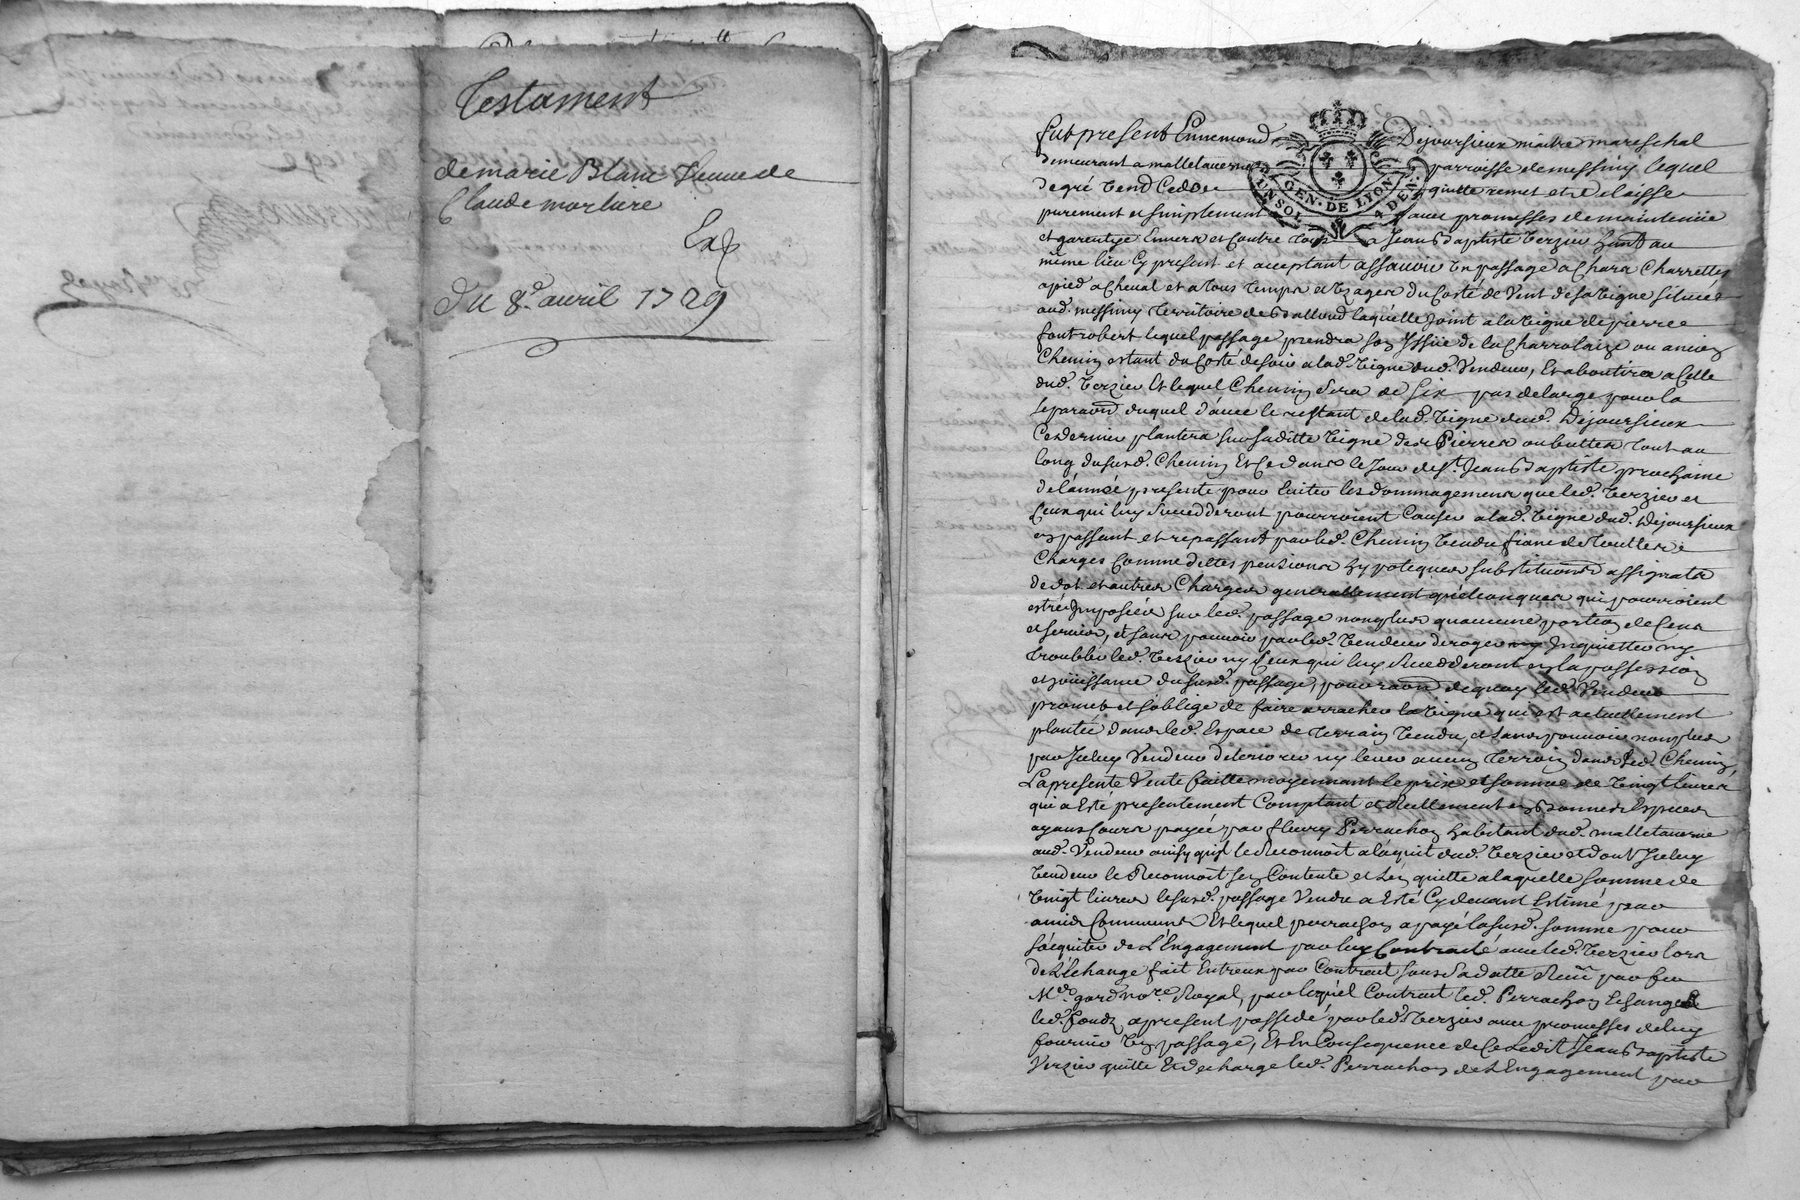 Testament
de marie Blanc Veuve de
Claude morliere
Exp
du 8e. avril 1729
fut present Ennemond Dejoursieux maitre mareschal
demeurant a malletaverne parroisse de messimy lequel
de gré Vend Cede quitte remet et delaisse
purement et simplement avec promesses de maintenüe
et garentye Envers et Contre tous a Jean Baptiste Verzieu habt. au
même lieu Cy present et acceptant assavoir Un passage a Chars Charrettes
apied a Cheval et a tous temps et Usages du Costé de Vent de sa Vigne située
aud. messimy territoire de laquelle Joint a la Vigne de pierre
font robert lequel passage prendra son Issüe de la Charrolaize ou ancien
Chemin estant du Costé de soir a lad. Vigne dud. Vendeur, Et aboutira a Celle
dud. Verzieu Et lequel Chemin sera de Six pas de large pour la
separaon duquel d'avec le restant de lad. Vigne dud. Dejoursieux
Ce dernier plantera sur saditte Vigne des Pierres ou buttes tout au
long du susd. Chemin Et Ce dans le Jour de st. Jean Baptiste prochaine
de l'année presente pour Eviter les dommagemens que led. Verzieu et
Ceux qui luy succedderont pourroient Causer a lad. Vigne dud. Dejoursieux
en passant et repassant par led. Chemin Vendu franc de touttes
Charges Comme dettes pensions hypoteques substitutions assignats
de dot et autres Charges generallement quelconques qui pourroient
estre Imposées sur led. passage non plus qu'aucune portion de Cens
et servis, et sans pouvoir par led. Vendeur deroger ny Inquietter ny
troubler led. Verzieu ny Ceux qui luy succedderont en la possession
et joüissance du susd. passage, pour raon dequoy led. Vendeur
promet et s'oblige de faire arracher la Vigne qui est actuellement
plantée dans led. Espace de terrain Vendu, et sans pouvoir non plus
par Iceluy Vendeur deteriorer ny lever aucun terrein dans led. Chemin,
La presente Vente faitte moyennant le prix et somme de Vingt livres
qui a Esté presentement Comptant et Reellement en bonnes Especes
ayant Cours payée par fleury Perrachon habitant dud. malletaverne
aud. Vendeur ainsy qu'il le Reconnoit a l'aquit dud. Verzieu et dont Iceluy
Vendeur le Reconnoit s'en Contente et L'en quitte a laquelle somme de
Vingt livres le susd. passage Vendu a Esté Cy devant Estimé par
amis Communs Et lequel perrachon a payé la susd. somme pour
s'aquiter de L'Engagement par luy Contracté avec led. Verzieu lors
de L'Echange fait Entreux par Contract sous sa datte Reçu par feu
Me. gord nore. Royal, par lequel Contract led. Perrachon Echangea
led. fonds a present possedé par led. Verzieu avec promesses de luy
fournir Un passage, Et En Consequence de Ce Ledit Jean Baptiste
Verzieu quitte Et decharge led. Perrachon de L'Engagement par
GEN. DE LYON
UN SOL 4 DEN.